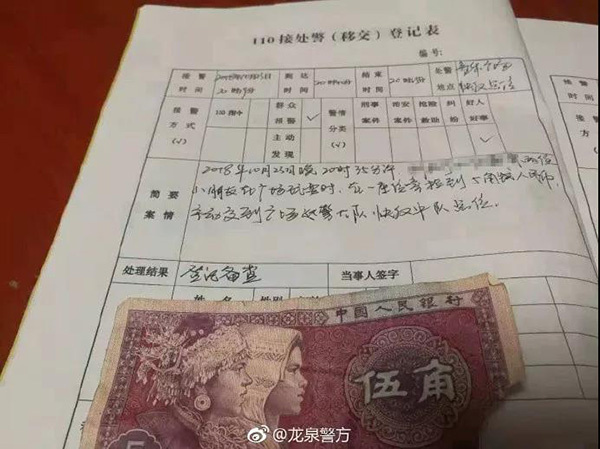 110接处警(移交)登记表
编号:
接警时间
到达时间
结束时间
处警地点
接警方式(√)
110指令
群众报警
√
主动发现
警情分类(√)
刑事案件
治安案件
危险救助
纠纷
好人好事
√
简要案情
2018年10月25日晚20时35分许
小朋友在广场玩耍时,在一座位旁捡到5角纸人民币,
主动交到广场
大队快反中队点位。
处理结果
登记备查
当事人签字
姓名
性别
中国人民银行
伍角
5
接警时间
接警方式(√)
简案
@龙泉警方